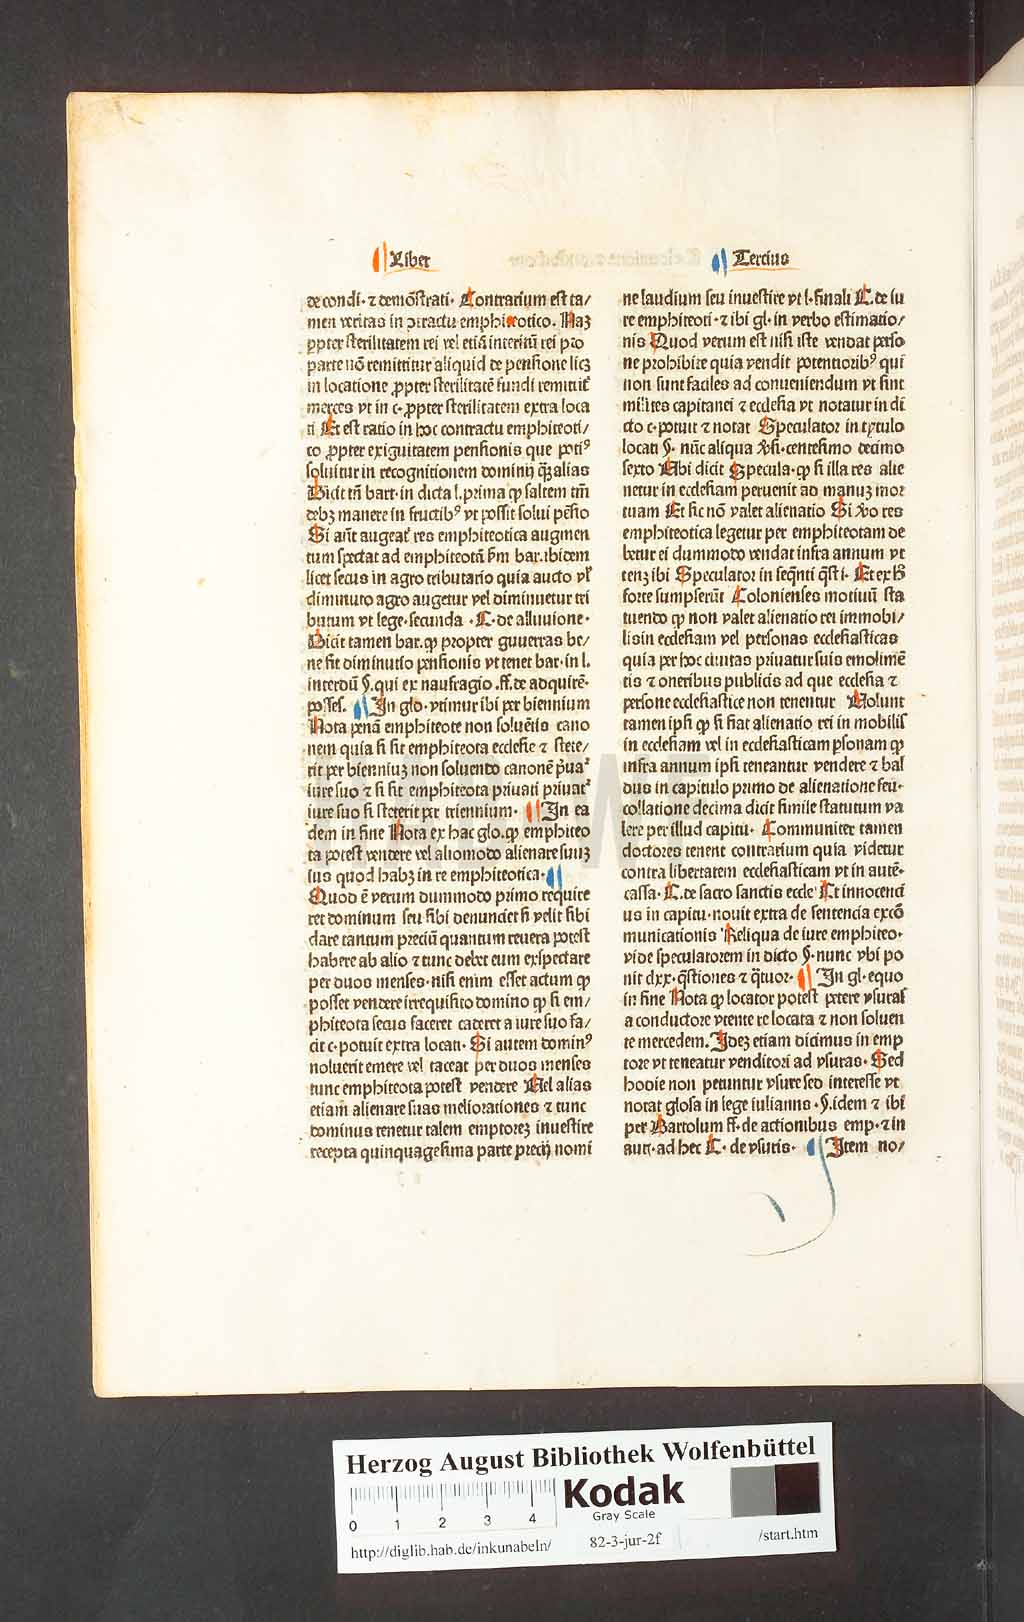 Liber
Tercius
de condi· ⁊ demõstrati· Contrarium est ta/
men veritas in ↄtractu emphiteotico. Naʒ
ꝓpter sterilitatem rei vel etiã interitũ rei pro
parte nõ remittitur aliquid de pensione licʒ
in locatione ꝓpter sterilitatẽ fundi remittit᷑
merces vt in c· ꝓpter sterilitatem extra loca
ti Et est ratio in hoc contractu emphiteoti/
co ꝓpter exiguitatem pensionis que potiꝰ
soluitur in recognitionem dominij qʒ alias
Dicit tñ bart· in dicta l. prima ꝙ saltem tm̃
debʒ manere in fructibꝰ vt possit solui pẽsio
Si aũt augeat᷑ res emphiteotica augmen
tum spectat ad emphiteotã ẜm bar. ibidem
licet secus in agro tributario quia aucto vl̓
diminuto agro augetur vel diminuetur tri
butum vt lege· secunda ·C· de alluuione·
Dicit tamen bar. ꝙ propter guuerras be/
ne fit diminutio pensionis vt tenet bar· in l.
interdũ §. qui ex naufragio .ff. de adquirẽ·
posses. In glo· vtimur ibi per biennium
Nota penã emphiteote non soluẽtis cano
nem quia si sit emphiteota ecclesie ⁊ stete/
rit per bienniuʒ non soluendo canonẽ p̃uat᷑
iure suo ⁊ si sit emphiteota priuati priuat᷑
iure suo si steterit per triennium· In ea
dem in fine Nota ex hac glo. ꝙ emphiteo
ta potest vendere vel aliomodo alienare iuʒ
sus quod habʒ in re emphiteotica·
Quod ẽ verum dummodo primo require
ret dominum seu sibi denunciet si velit sibi
dare tantum preciũ quantum reuera potest
habere ab alio ⁊ tunc debet eum exspectare
per duos menses· nisi enim esset actum ꝙ
posset vendere irrequisito domino ꝙ si em/
phiteota secus faceret caderet a iure suo fa/
cit c· potuit extra locati· Si autem dominꝰ
noluerit emere vel taceat per duos menses
tunc emphiteota potest vendere Uel alias
etiam alienare suas meliorationes ⁊ tunc
dominus tenetur talem emptoreʒ inuestire
recepta quinquagesima parte precij nomi
ne laudium seu inuestire vt l· finali C. de iu
re emphiteoti· ⁊ ibi gl· in verbo estimatio/
nis Quod verum est nisi iste vendat perso
ne prohibite quia vendit potentioribꝰ qui
non sunt faciles ad conueniendum vt sunt
milites capitanei ⁊ ecclesia vt notatur in di
cto c· potuit ⁊ notat Speculator in tytulo
locati §. nũc aliqua v̓si· centesimo decimo
sexto Ubi dicit Specula· ꝙ si illa res alie
netur in ecclesiam peruenit ad manuʒ mor
tuam Et sic nõ valet alienatio Si v̓o res
emphiteotica legetur per emphiteotam de
betur ei dummodo vendat infra annum vt
tenʒ ibi Speculator in seq̃nti q̃sti· Et ex h̓
forte sumpserũt Colonienses motiuũ sta
tuendo ꝙ non valet alienatio rei immobi/
lis in ecclesiam vel personas ecclesiasticas
quia per hoc ciuitas priuatur suis emolimẽ
tis ⁊ oneribus publicis ad que ecclesia ⁊
persone ecclesiastice non tenentur Uolunt
tamen ipsi ꝙ si fiat alienatio rei in mobilis
in ecclesiam vel in ecclesiasticam ꝑsonam ꝙ
infra annum ipsi teneantur vendere ⁊ bal
dus in capitulo primo de alienatione feu·
collatione decima dicit simile statutum va
lere per illud capitu· Communiter tamen
doctores tenent contrarium quia videtur
contra libertatem ecclesiasticam vt in autẽ·
cassa· C. de sacro sanctis eccle' Et innocenci
us in capitu· nouit extra de sentencia excõ
municationis Reliqua de iure emphiteo·
vide speculatorem in dicto §· nunc vbi po
nit clxx· q̃stiones ⁊ q̃tuor· In gl· equo
in fine Nota ꝙ locator potest petere vsuras
a conductore vtente re locata ⁊ non soluen
te mercedem. Ideʒ etiam dicimus in emp
tore vt teneatur venditori ad vsuras· Sed
hodie non petuntur vsure sed interesse vt
notat glosa in lege iulianus· §. idem ⁊ ibi
per Bartolum ff· de actionibus emp· ⁊ in
autt· ad hec C· de vsuris· Item no/
Herzog August Bibliothek Wolfenbüttel
0 1 2 3 4
Kodak
Gray Scale
http://diglib.hab.de/inkunabeln/ 82-3-jur-2f /start.htm
HAB WF